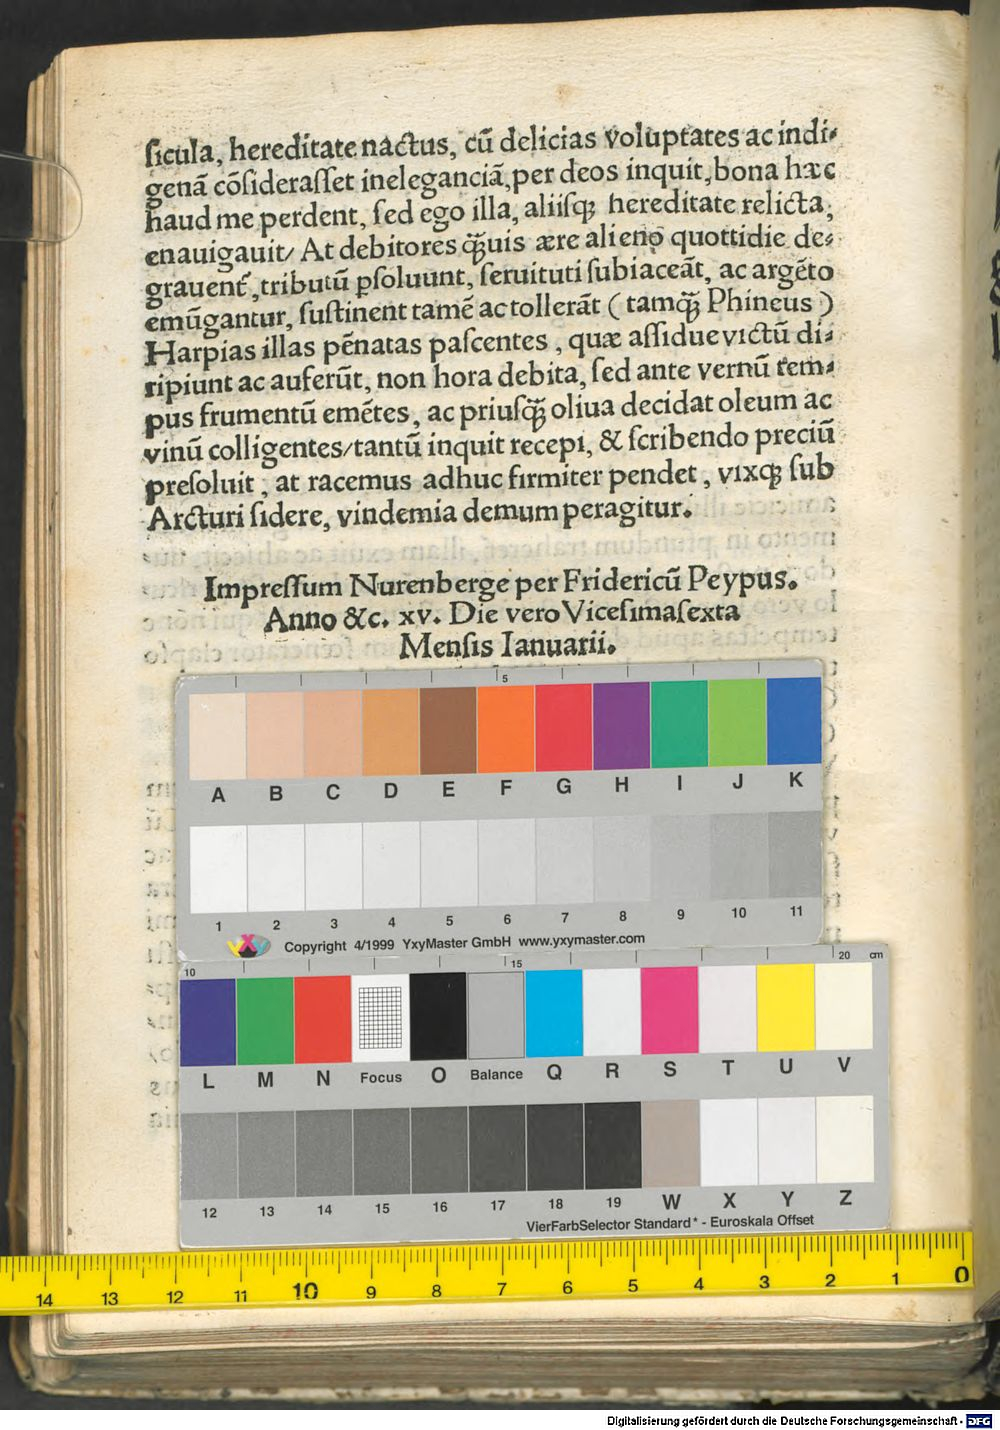 ſicula, hereditate nactus, cũ delicias voluptates ac indi⸗
genã cõſideraſſet ineleganciã, per deos inquit, bona hæc
haud me perdent, ſed ego illa, aliiſqꝫ hereditate relicta,
enauigauit/ At debitores qꝫ̃uis ære alieno quottidie de⸗
grauent̃, tributũ ꝑſoluunt, ſeruituti ſubiaceãt, ac argẽto
emũgantur, ſuſtinent tamẽ ac tollerãt ( tamqꝫ̃ Phineus )
Harpias illas pẽnatas paſcentes, quæ aſſidue victũ di⸗
ripiunt ac auferũt, non hora debita, ſed ante vernũ tem⸗
pus frumentũ emẽtes, ac priuſqꝫ̃ oliua decidat oleum ac
vinũ colligentes/tantũ inquit recepi, & ſcribendo preciũ
preſoluit, at racemus adhuc firmiter pendet, vixqꝫ ſub
Arcturi ſidere, vindemia demum peragitur.
Impreſſum Nurenberge per Fridericũ Peypus.
Anno &c. xv. Die vero Viceſimaſexta
Menſis Ianuarii.
5
A B C D E F G H I J K
1 2 3 4 5 6 7 8 9 10 11
yxy Copyright 4/1999 YxyMaster GmbH www.yxymaster.com
10 15 20 cm
L M N Focus O Balance Q R S T U V
12 13 14 15 16 17 18 19 W X Y Z
VierFarbSelector Standard* - Euroskala Offset
14 13 12 11 10 9 8 7 6 5 4 3 2 1 0
Digitalisierung gefördert durch die Deutsche Forschungsgemeinschaft - DFG